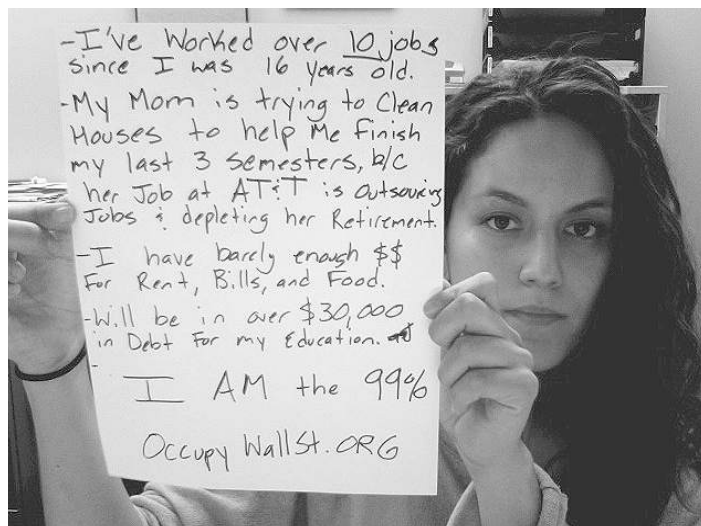 -I've Worked over 10 jobs
since I was 16 years old.
-My Mom is trying to Clean
Houses to help Me Finish
my last 3 semesters, b/c
her Job at AT&T is Outsourcing
Jobs & depleting her Retirement.
-I have barely enough $$
For Rent, Bills, and Food.
-Will be in over $30,000
in Debt For my Education.
-
I AM the 99%
Occupy WallSt.ORG